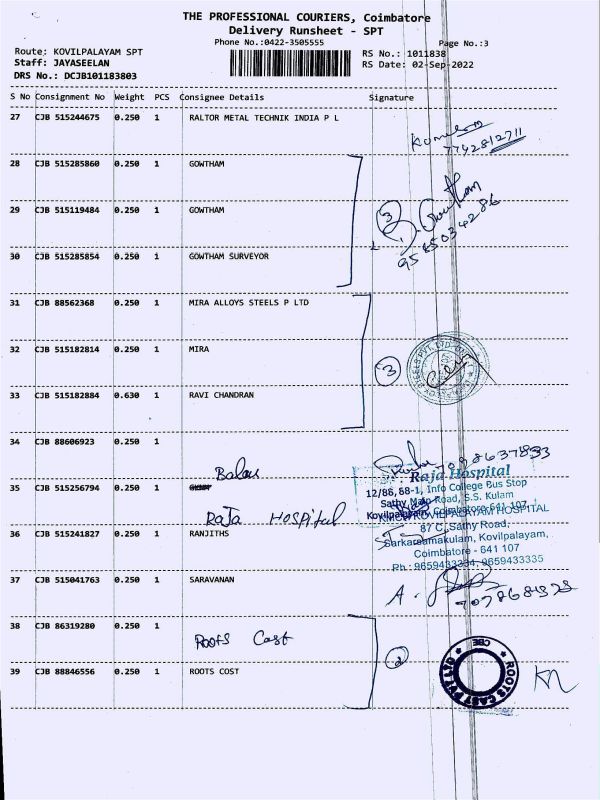 THE PROFESSIONAL COURIERS, Coimbatore
Delivery Runsheet - SPT
Phone No.:0422-3505555
Page No.:3
Route: KOVILPALAYAM SPT
RS No.: 1011838
Staff: JAYASEELAN
RS Date: 02-Sep-2022
DRS No.: DCJB101183803
S No Consignment No Weight PCS Consignee Details Signature
27 CJB 515244675 0.250 1 RALTOR METAL TECHNIK INDIA P L
7742812711
28 CJB 515285860 0.250 1 GOWTHAM
29 CJB 515119484 0.250 1 GOWTHAM
3
30 CJB 515285854 0.250 1 GOWTHAM SURVEYOR
31 CJB 88562368 0.250 1 MIRA ALLOYS STEELS P LTD
32 CJB 515182814 0.250 1 MIRA
3
33 CJB 515182884 0.630 1 RAVI CHANDRAN
34 CJB 88606923 0.250 1
Balau
Raja Hospital
35 CJB 515256794 0.250 1
12/86,88-1, Info College Bus Stop
Sathy Main Road, S.S. Kulam
Kovilpalayam, Coimbatore-641 107
Raja Hospital
KMCH KOVILPALAYAM HOSPITAL
36 CJB 515241827 0.250 1 RANJITHS
87 C, Sathy Road,
Sarkarsamakulam, Kovilpalayam,
Coimbatore - 641 107
Ph : 9659433334, 9659433335
37 CJB 515041763 0.250 1 SARAVANAN
38 CJB 86319280 0.250 1
Roots Cast
2
39 CJB 88846556 0.250 1 ROOTS COST
ROOTS CAST PVT LTD
CBE